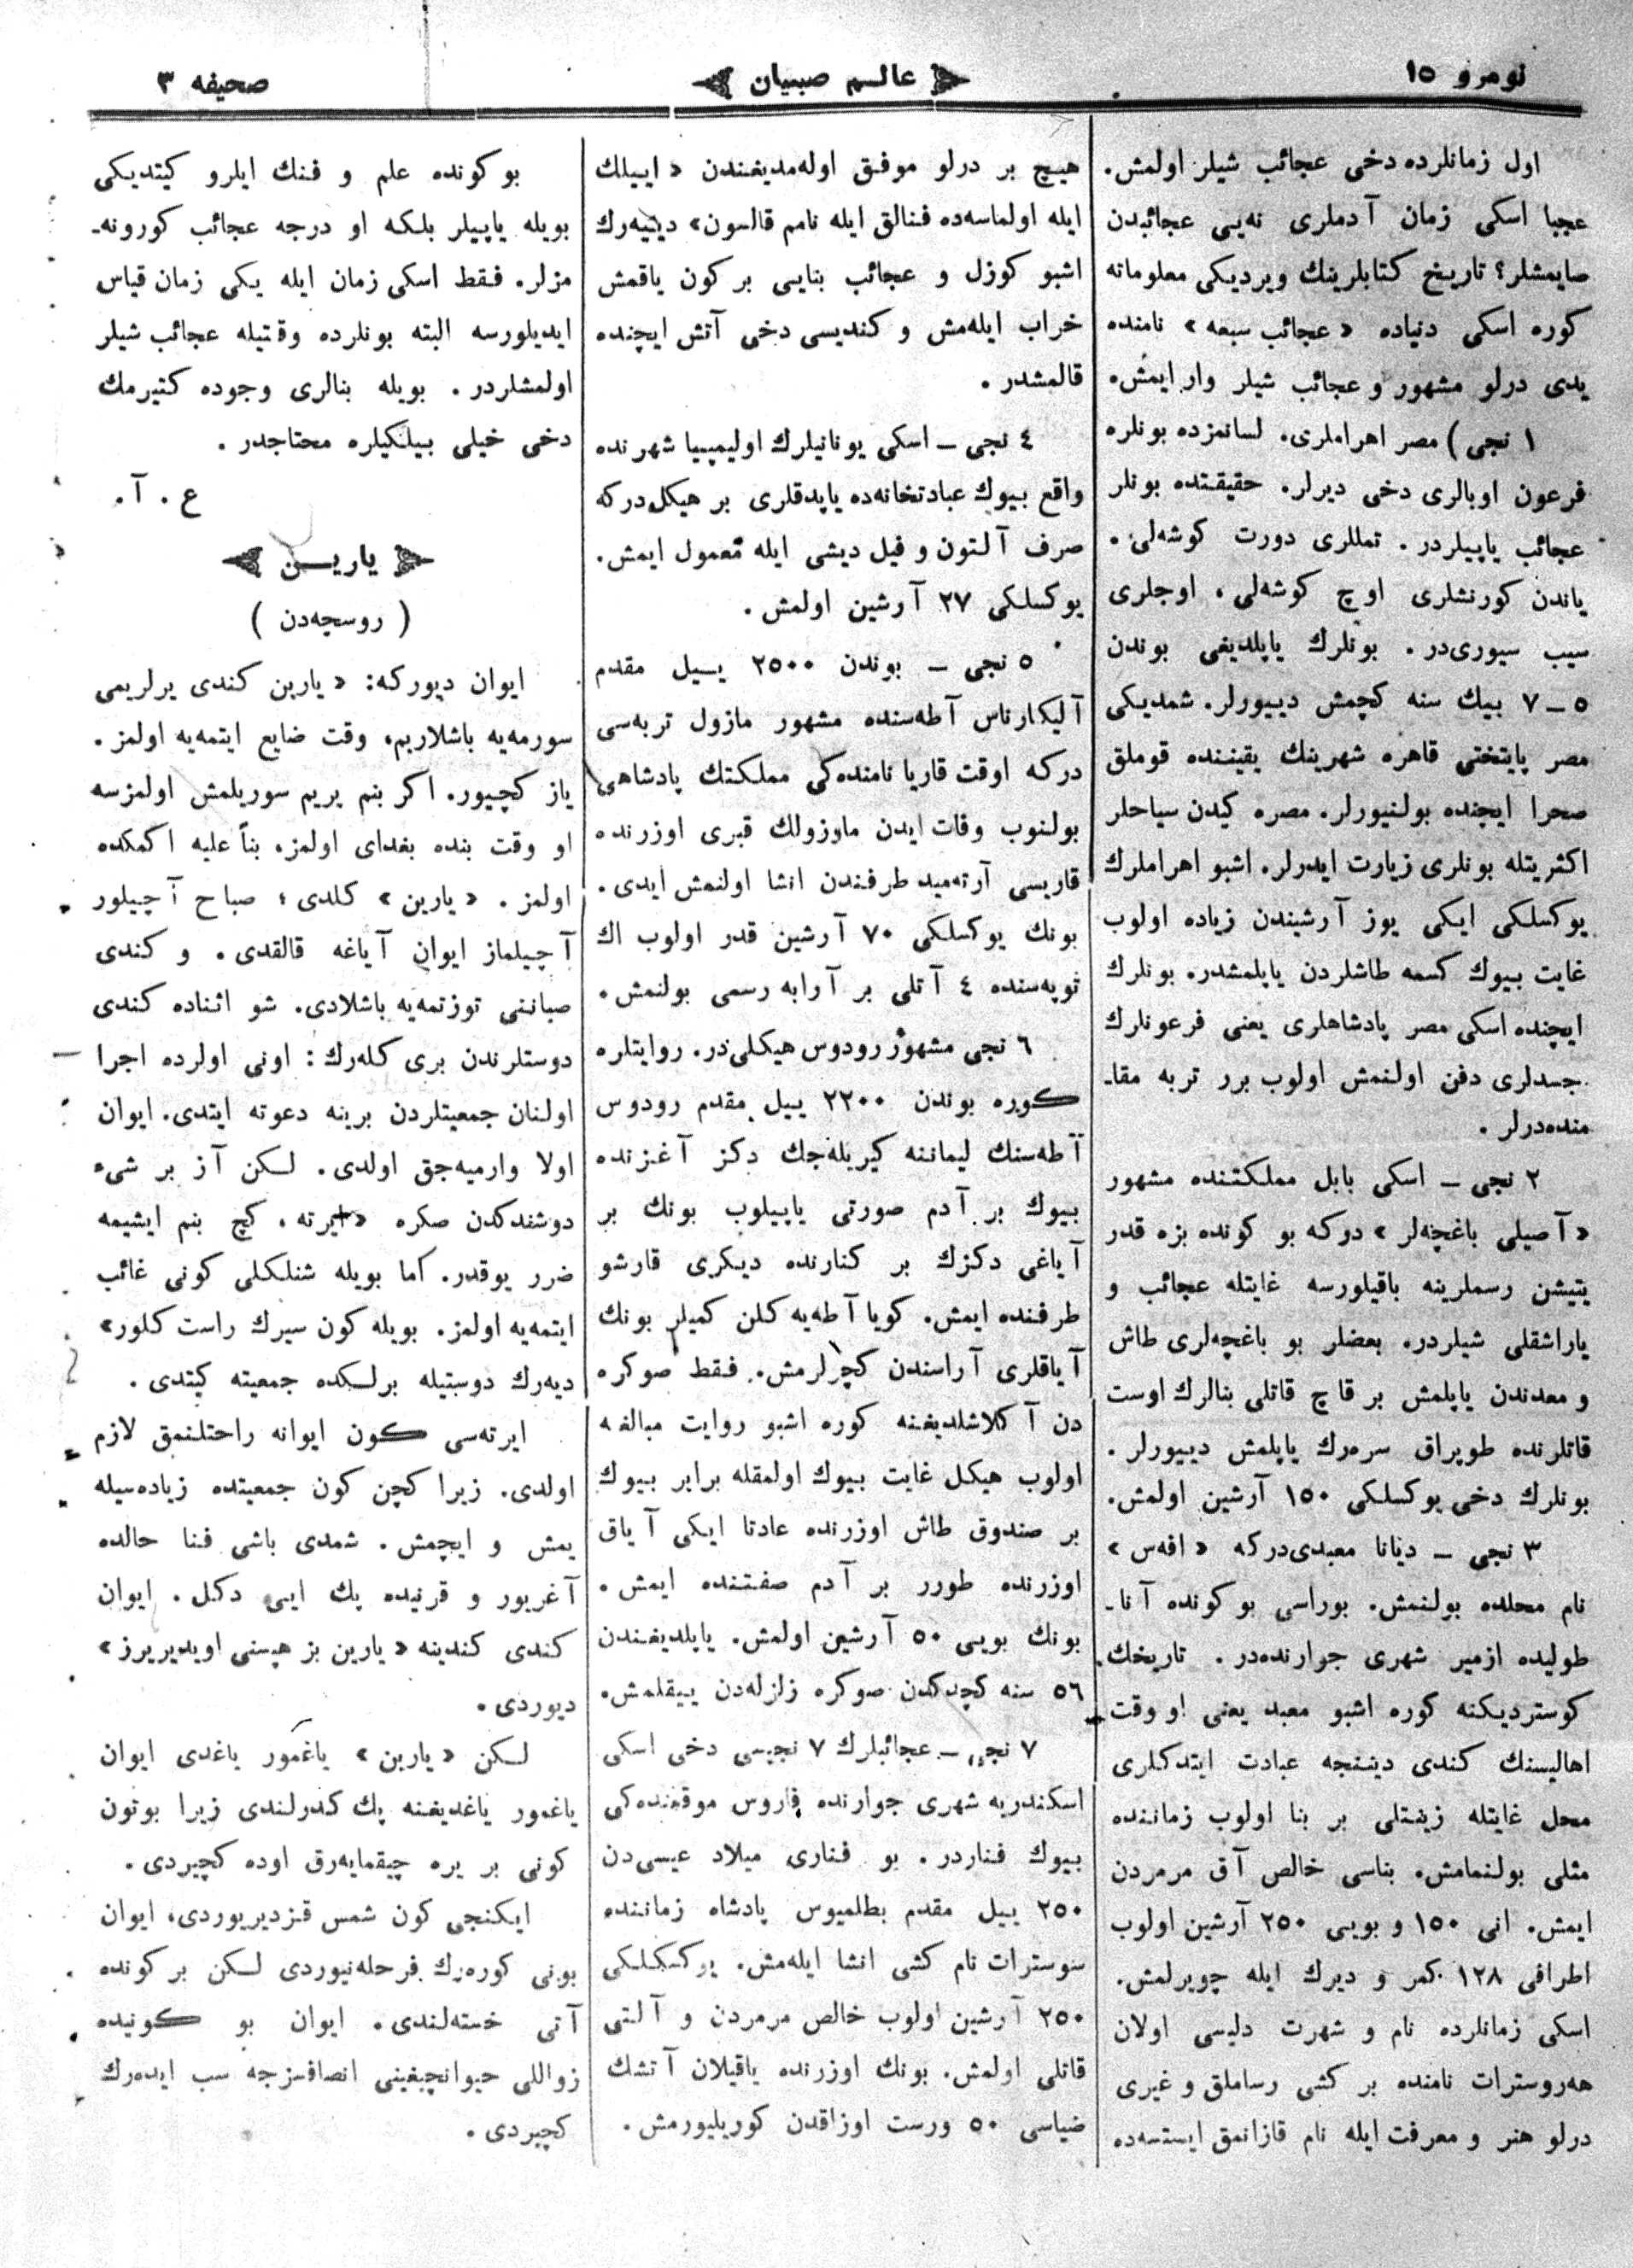 نومرو ١٥
عالم صبيان
صحيفه ٣
اول زمانلرده دخى عجائب شيلر اولمش.
عجبا اسكى زمان آدملرى نه‌يى عجائبدن
صايمشلر؟ تاريخ كتابلرينك ويرديكى معلوماته
كوره اسكى دنياده «عجائب سبعه» نامنده
يدى درلو مشهور و عجائب شيلر وار ايمش.
١ نجى) مصر اهراملرى. لسانمزده بونلره
فرعون اوبالرى دخى ديرلر. حقيقتده بونلر
عجائب ياپيلردر. تمللرى دورت كوشه‌لى.
ياندن كورنشلرى اوچ كوشه‌لى، اوجلرى
سيب سيورى‌در. بونلرك ياپلديغى بوندن
٥ ــ ٧ بيك سنه كچمش دييورلر. شمديكى
مصر پايتختى قاهره شهرينك يقيننده قوملق
صحرا ايچنده بولنيورلر. مصره كيدن سياحلر
اكثريتله بونلرى زيارت ايدرلر. اشبو اهراملرك
يوكسلكى ايكى يوز آرشيندن زياده اولوب
غايت بيوك كسمه طاشلردن ياپلمشدر. بونلرك
ايچنده اسكى مصر پادشاهلرى يعنى فرعونلرك
جسدلرى دفن اولنمش اولوب برر تربه مقا-
منده‌درلر.
٢ نجى ــ اسكى بابل مملكتنده مشهور
«آصيلى باغچه‌لر» دركه بو كونده بزه قدر
يتيشن رسملرينه باقيلورسه غايتله عجائب و
ياراشقلى شيلردر. بعضلر بو باغچه‌لرى طاش
و معدندن ياپلمش بر قاچ قاتلى بنالرك اوست
قاتلرنده طوپراق سره‌رك ياپلمش دييورلر.
بونلرك دخى يوكسلكى ١٥٠ آرشين اولمش.
٣ نجى ــ ديانا معبدى‌دركه «افه‌س»
نام محلده بولنمش. بوراسى بو كونده آنا-
طوليده ازمير شهرى جوارنده‌در. تاريخك
كوسترديكنه كوره اشبو معبد يعنى او وقت
اهاليسنك كندى ديننجه عبادت ايتدكلرى
محل غايتله زينتلى بر بنا اولوب زماننده
مثلى بولنمامش. بناسى خالص آق مرمردن
ايمش. انى ١٥٠ و بويى ٢٥٠ آرشين اولوب
اطرافى ١٢٨ كمر و ديرك ايله چويرلمش.
اسكى زمانلرده نام و شهرت دليسى اولان
هه‌روسترات نامنده بر كشى رساملق و غيرى
درلو هنر و معرفت ايله نام قازانمق ايستسه‌ده
هيچ بر درلو موفق اوله‌مديغندن «اييلك
ايله اولماسه‌ده فنالق ايله نامم قالسون» دييه‌رك
اشبو كوزل و عجائب بنايى بر كون ياقمش
خراب ايله‌مش و كنديسى دخى آتش ايچنده
قالمشدر.
٤ نجى ــ اسكى يونانيلرك اوليمپيا شهرنده
واقع بيوك عبادتخانه‌ده ياپدقلرى بر هيكل‌دركه
صرف آلتون و فيل ديشى ايله معمول ايمش.
يوكسلكى ٢٧ آرشين اولمش.
٥ نجى ــ بوندن ٢٥٠٠ ييل مقدم
آليكارناس آطه‌سنده مشهور مازول تربه‌سى
دركه اوقت قاريا نامنده‌كى مملكتك پادشاهى
بولنوب وفات ايدن ماوزولك قبرى اوزرنده
قاريسى آرته‌ميد طرفندن انشا اولنمش ايدى.
بونك يوكسلكى ٧٠ آرشين قدر اولوب اك
توپه‌سنده ٤ آتلى بر آرابه رسمى بولنمش.
٦ نجى مشهور رودوس هيكلى‌در. روايتلره
كوره بوندن ٢٢٠٠ ييل مقدم رودوس
آطه‌سنك ليماننه كيريله‌جك دكز آغزنده
بيوك بر آدم صورتى ياپيلوب بونك بر
آياغى دكزك بر كنارنده ديكرى قارشو
طرفنده ايمش. كويا آطه‌يه كلن كميلر بونك
آياقلرى آراسندن كچرلرمش. فقط صوكره
دن آكلاشلديغنه كوره اشبو روايت مبالغه
اولوب هيكل غايت بيوك اولمقله برابر بيوك
بر صندوق طاش اوزرنده عادتا ايكى آياق
اوزرنده طورر بر آدم صفتنده ايمش.
بونك بويى ٥٠ آرشين اولمش. ياپلديغندن
٥٦ سنه كچدكدن صوكره زلزله‌دن ييقلمش.
٧ نجى ــ عجائبلرك ٧ نجيسى دخى اسكى
اسكندريه شهرى جوارنده فاروس موقعنده‌كى
بيوك فناردر. بو فنارى ميلاد عيسى‌دن
٢٥٠ ييل مقدم بطلميوس پادشاه زماننده
سوسترات نام كشى انشا ايله‌مش. يوكسكلكى
٢٥٠ آرشين اولوب خالص مرمردن و آلتى
قاتلى اولمش. بونك اوزرنده ياقيلان آتشك
ضياسى ٥٠ ورست اوزاقدن كوريليورمش.
بو كونده علم و فنك ايلرو كيتديكى
بويله ياپيلر بلكه او درجه عجائب كورونه-
مزلر. فقط اسكى زمان ايله يكى زمان قياس
ايديلورسه البته بونلرده وقتيله عجائب شيلر
اولمشلردر. بويله بنالرى وجوده كتيرمك
دخى خيلى بيلكيلره محتاجدر.
ع. آ.
يارين
(روسچه‌دن)
ايوان ديوركه: «يارين كندى يرلريمى
سورمه‌يه باشلاريم، وقت ضايع ايتمه‌يه اولمز.
ياز كچيور. اكر بنم يريم سوريلمش اولمزسه
او وقت بنده بغداى اولمز، بناً عليه اكمكده
اولمز. «يارين» كلدى؛ صباح آچيلور
آچيلماز ايوان آياغه قالقدى. و كندى
صباننى توزتمه‌يه باشلادى. شو اثناده كندى
دوستلرندن برى كله‌رك: اونى اولرده اجرا
اولنان جمعيتلردن برينه دعوته ايتدى. ايوان
اولا وارميه‌جق اولدى. لكن آز بر شىء
دوشندكدن صكره «ايرته، كچ بنم ايشيمه
ضرر يوقدر. اما بويله شنلكلى كونى غائب
ايتمه‌يه اولمز. بويله كون سيرك راست كلور»
ديه‌رك دوستيله برلكده جمعيته كيتدى.
ايرته‌سى كون ايوانه راحتلنمق لازم
اولدى. زيرا كچن كون جمعيتده زياده‌سيله
يمش و ايچمش. شمدى باشى فنا حالده
آغريور و قرنيده پك ايى دكل. ايوان
كندى كندينه «يارين بز هپسنى اويديريرز»
ديوردى.
لكن «يارين» ياغمور ياغدى ايوان
ياغمور ياغديغنه پك كدرلندى زيرا بوتون
كونى بر يره چيقمايه‌رق اوده كچيردى.
ايكنجى كون شمس قزديريوردى، ايوان
بونى كوره‌رك فرحله‌نيوردى لكن بر كونده
آتى خسته‌لندى. ايوان بو كونيده
زواللى حيوانچيغينى انصافسزجه سب ايده‌رك
كچيردى.